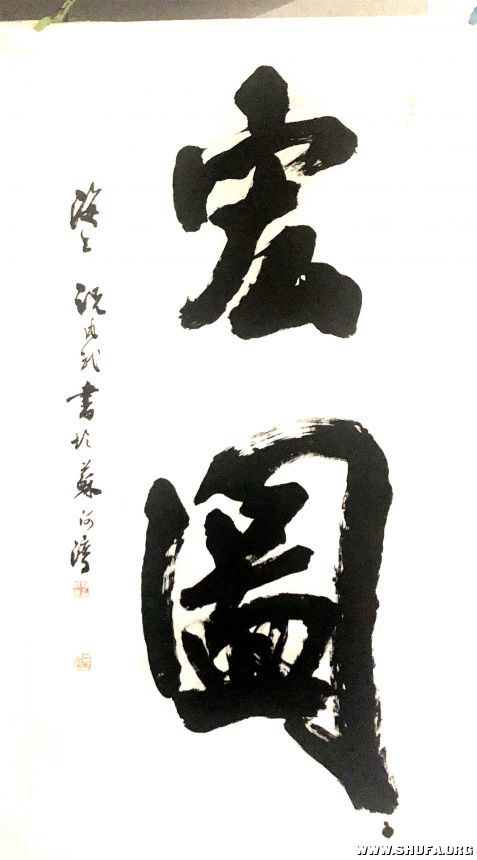 宏圖
海上祝成龍書於蘇河灣
WWW.SHUFA.ORG